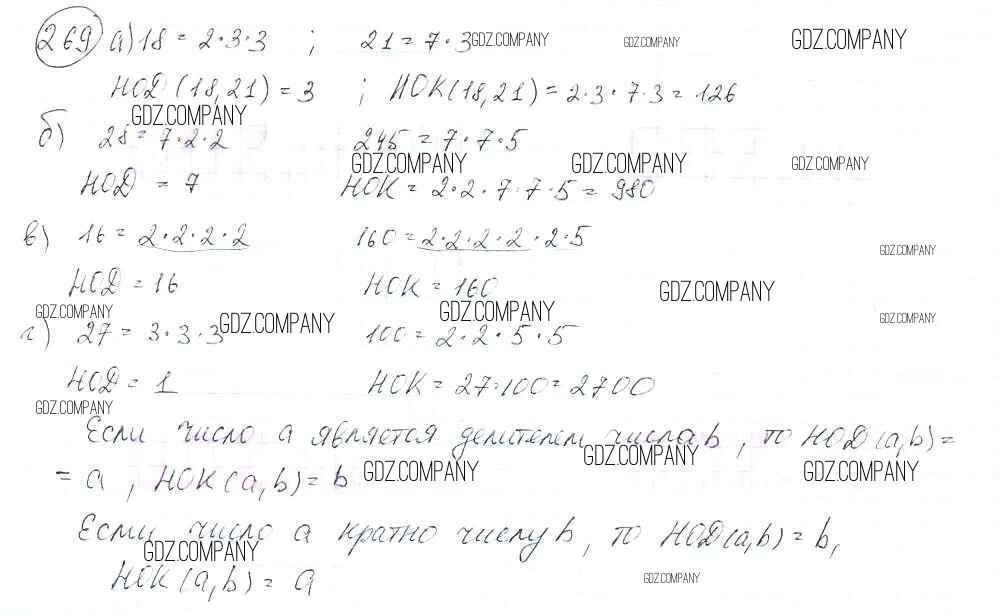 269 а) 18 = 2·3·3 ; 21 = 7·3 GDZ.COMPANY GDZ.COMPANY GDZ.COMPANY
НОД (18,21) = 3 ; НОК(18,21) = 2·3·7·3 = 126
GDZ.COMPANY
б) 28 = 7·2·2 245 = 7·7·5
GDZ.COMPANY GDZ.COMPANY GDZ.COMPANY
НОД = 7 НОК = 2·2·7·7·5 = 980
в) 16 = 2·2·2·2 160 = 2·2·2·2·2·5
GDZ.COMPANY
НОД = 16 НОК = 160 GDZ.COMPANY
GDZ.COMPANY GDZ.COMPANY GDZ.COMPANY GDZ.COMPANY
г) 27 = 3·3·3 100 = 2·2·5·5
НОД = 1 НОК = 27·100 = 2700
GDZ.COMPANY
Если число a является делителем числа b, то НОД(a,b) =
GDZ.COMPANY
= a, НОК(a,b) = b GDZ.COMPANY GDZ.COMPANY
Если число a кратно числу b, то НОД(a,b) = b,
GDZ.COMPANY
НОК(a,b) = a GDZ.COMPANY